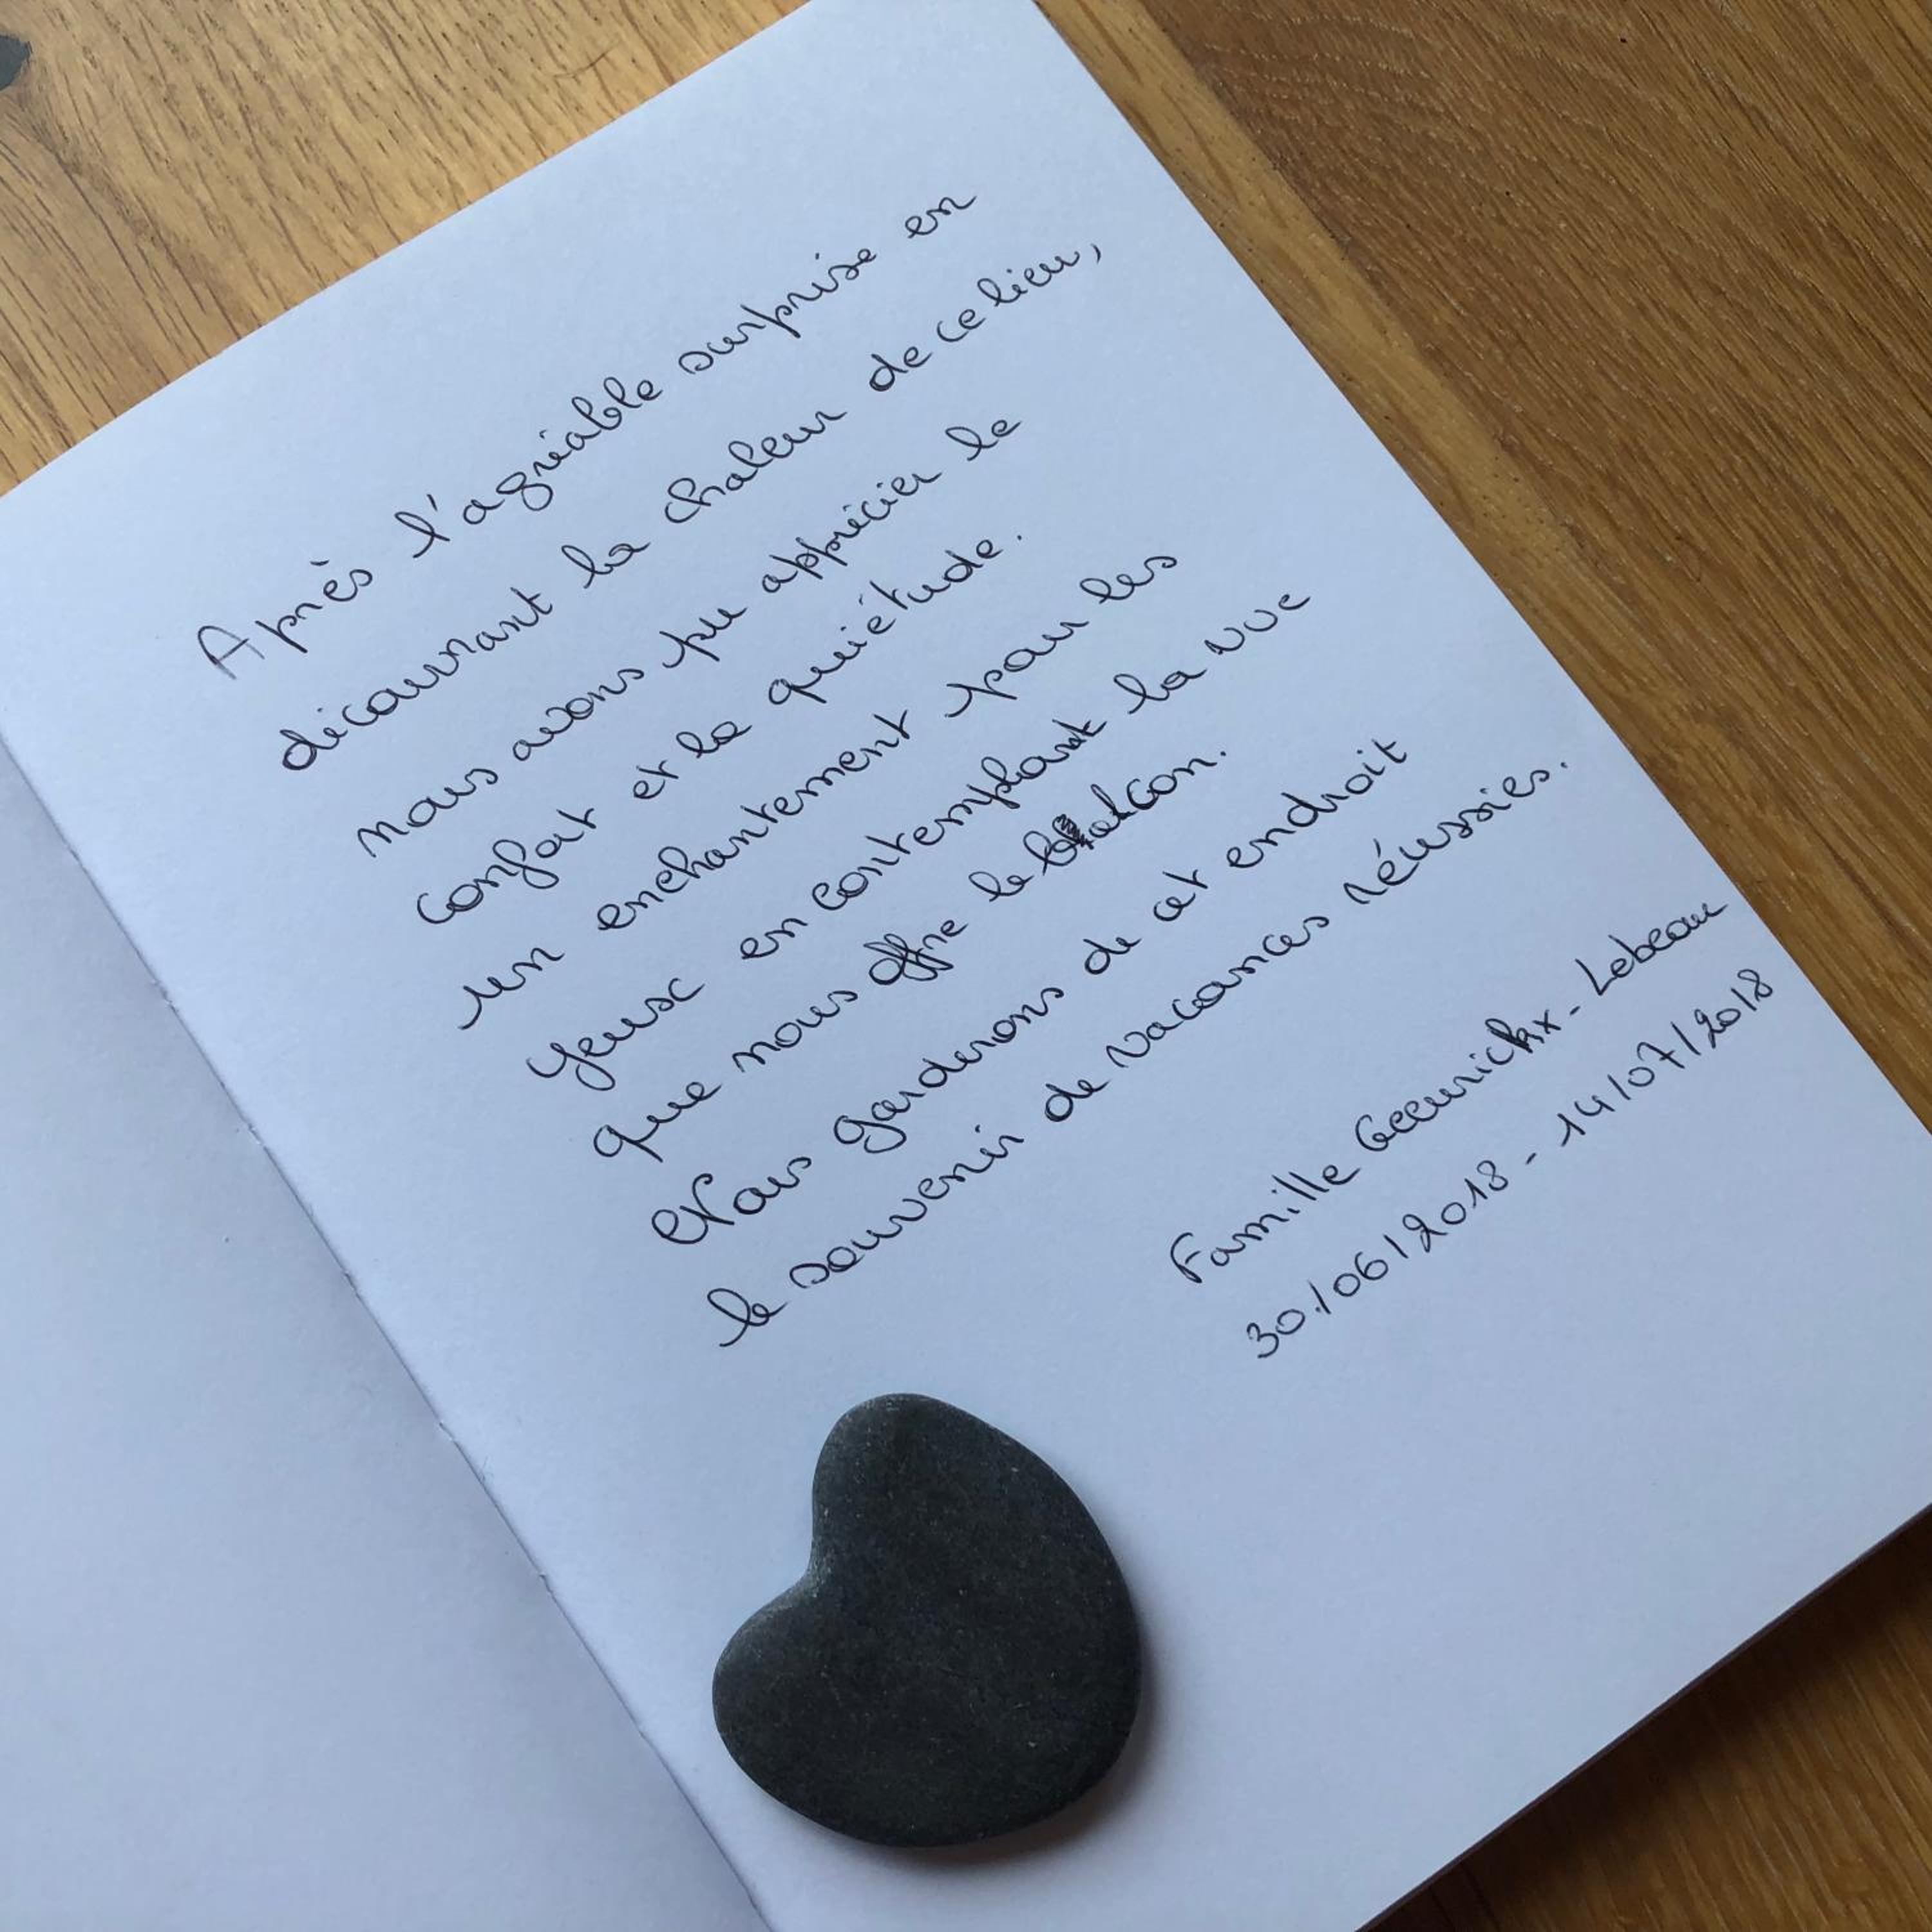 Après l'agréable surprise en
découvrant la chaleur de ce lieu,
nous avons pu apprécier le
confort et la quiétude.
un enchantement pour les
yeux en contemplant la vue
que nous offre le balcon.
Nous garderons de cet endroit
le souvenir de vacances réussies.
Famille Geeurickx - Lebeau
30/06/2018 - 14/07/2018